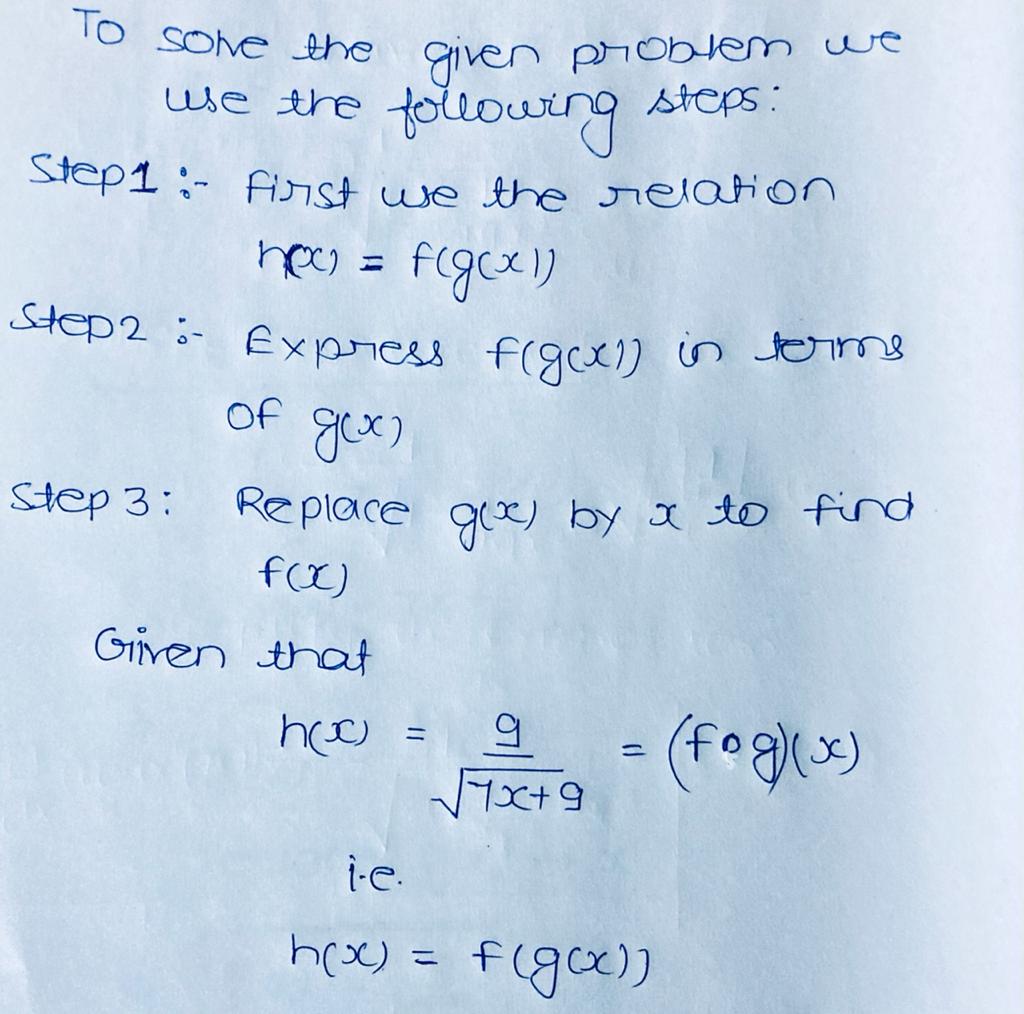 To solve the given problem we
use the following steps:
Step1 :- First use the relation
h(x) = f(g(x))
Step2 :- Express f(g(x)) in terms
of g(x)
Step 3: Replace g(x) by x to find
f(x)
Given that
h(x) = 9/√7x+9 = (fog)(x)
i.e.
h(x) = f(g(x))